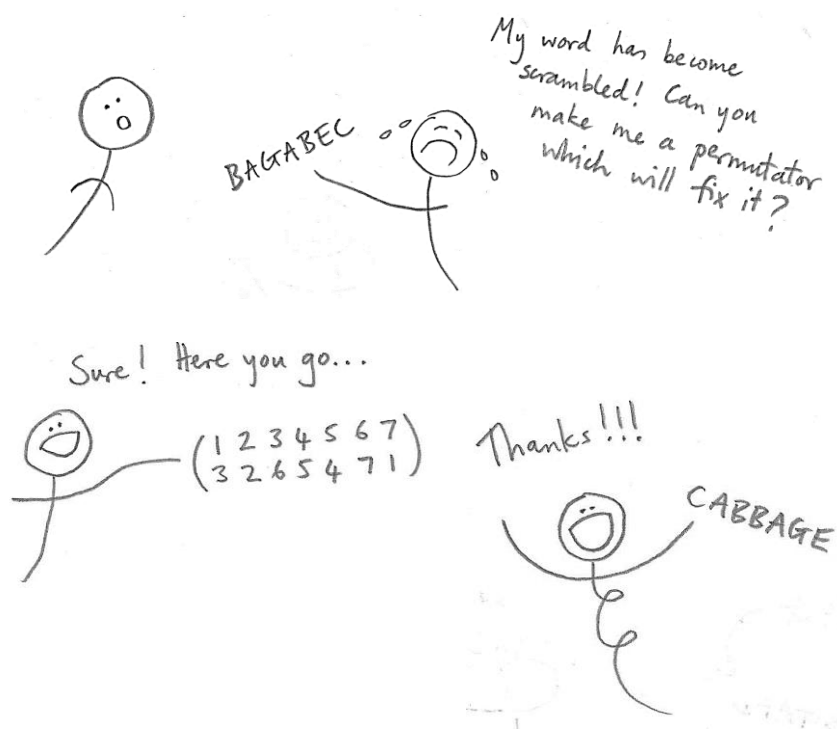 My word has become
scrambled! Can you
make me a permutator
which will fix it?
BAGABEC
Sure! Here you go...
(1 2 3 4 5 6 7
3 2 6 5 4 7 1)
Thanks!!!
CABBAGE